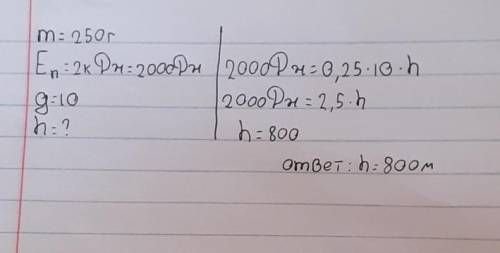 m=250г
Eп=2кДж=2000Дж
g=10
h=?
2000Дж=0,25·10·h
2000Дж=2,5·h
h=800
ответ: h=800м